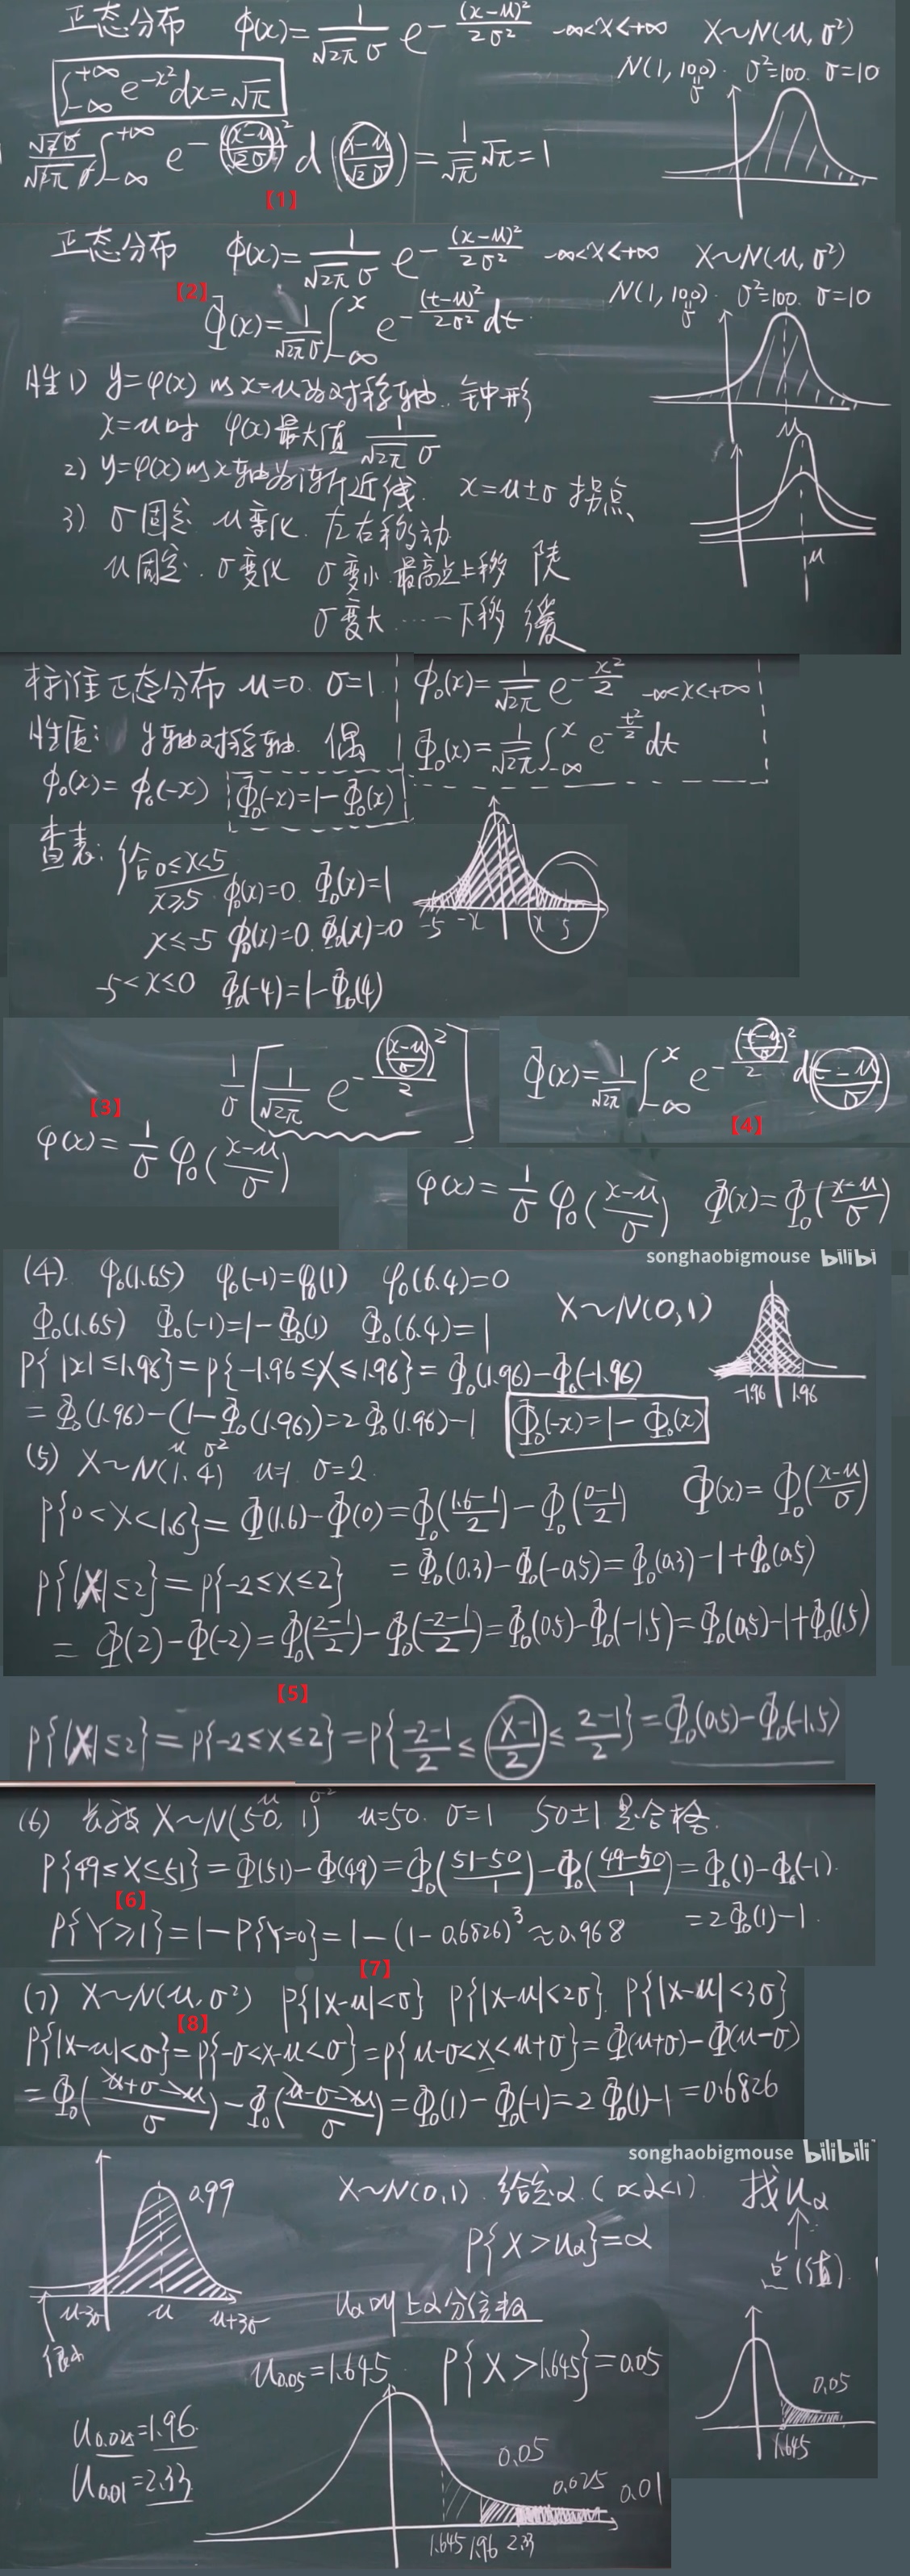 正态分布 φ(x)=1/(√2π σ) e^-(x-μ)²/(2σ²) -∞<x<+∞ X~N(μ,σ²)
∫_-∞^+∞ e^-x² dx=√π
N(1,100). σ²=100. σ=10
√2σ/(√2π σ) ∫_-∞^+∞ e^-((x-μ)/(√2σ))² d((x-μ)/(√2σ))=1/√π √π=1
【1】
正态分布 φ(x)=1/(√2π σ) e^-(x-μ)²/(2σ²) -∞<x<+∞ X~N(μ,σ²)
【2】
N(1,100). σ²=100. σ=10
Φ(x)=1/(√2π σ) ∫_-∞^x e^-(t-μ)²/(2σ²) dt
性1) y=φ(x)以x=μ为对称轴. 钟形
μ
x=μ时 φ(x)最大值 1/(√2π σ)
2) y=φ(x)以x轴为渐近线. x=μ±σ 拐点
3) σ固定 μ变化. 左右移动
μ固定. σ变化 σ变小.最高点上移 陡
μ
σ变大……下移 缓
标准正态分布 μ=0. σ=1.
φ₀(x)=1/√2π e^-x²/2 -∞<x<+∞
性质: y轴对称轴. 偶
Φ₀(x)=1/√2π ∫_-∞^x e^-t²/2 dt
φ₀(x)=φ₀(-x) Φ₀(-x)=1-Φ₀(x)
查表: 给0≤x<5
x≥5 φ₀(x)=0. Φ₀(x)=1
-5 -x x 5
x≤-5 φ₀(x)=0 Φ₀(x)=0
-5<x≤0 Φ₀(-4)=1-Φ₀(4)
1/σ [1/√2π e^-((x-μ)/σ)²/2]
【3】
φ(x)=1/σ φ₀((x-μ)/σ)
Φ(x)=1/√2π ∫_-∞^x e^-((t-μ)/σ)²/2 d(t-μ)/σ
【4】
φ(x)=1/σ φ₀((x-μ)/σ) Φ(x)=Φ₀((x-μ)/σ)
songhaobigmouse bilibi
(4). φ₀(1.65) φ₀(-1)=φ₀(1) φ₀(6.4)=0
Φ₀(1.65) Φ₀(-1)=1-Φ₀(1) Φ₀(6.4)=1 X~N(0,1)
P{|x|≤1.96}=P{-1.96≤X≤1.96}=Φ₀(1.96)-Φ₀(-1.96)
-1.96 1.96
=Φ₀(1.96)-(1-Φ₀(1.96))=2Φ₀(1.96)-1 Φ₀(-x)=1-Φ₀(x)
μ σ²
(5) X~N(1.4) μ=1. σ=2.
Φ(x)=Φ₀((x-μ)/σ)
P{0<X<1.6}=Φ(1.6)-Φ(0)=Φ₀((1.6-1)/2)-Φ₀((0-1)/2)
=Φ₀(0.3)-Φ₀(-0.5)=Φ₀(0.3)-1+Φ₀(0.5)
P{|X|≤2}=P{-2≤X≤2}
=Φ(2)-Φ(-2)=Φ₀((2-1)/2)-Φ₀((-2-1)/2)=Φ₀(0.5)-Φ₀(-1.5)=Φ₀(0.5)-1+Φ₀(1.5)
【5】
P{|X|≤2}=P{-2≤X≤2}=P{(-2-1)/2≤(X-1)/2≤(2-1)/2}=Φ₀(0.5)-Φ₀(-1.5)
μ σ²
(6) 长度X~N(50, 1) μ=50. σ=1 50±1 是合格.
P{49≤X≤51}=Φ(51)-Φ(49)=Φ₀((51-50)/1)-Φ₀((49-50)/1)=Φ₀(1)-Φ₀(-1).
【6】
=2Φ₀(1)-1.
P{Y≥1}=1-P{Y=0}=1-(1-0.6826)³≈0.968
【7】
(7) X~N(μ,σ²) P{|X-μ|<σ} P{|X-μ|<2σ}. P{|X-μ|<3σ}
【8】
P{|X-μ|<σ}=P{-σ<X-μ<σ}=P{μ-σ<X<μ+σ}=Φ(μ+σ)-Φ(μ-σ)
=Φ₀((μ+σ-μ)/σ)-Φ₀((μ-σ-μ)/σ)=Φ₀(1)-Φ₀(-1)=2Φ₀(1)-1=0.6826
songhaobigmouse bilibili
0.99
X~N(0,1). 给定α.(0<α<1). 找uα
P{X>uα}=α
点(值).
μ-3σ μ μ+3σ
很小
uα叫上α分位数
u0.05=1.645. P{X>1.645}=0.05
0.05
1.645
u0.025=1.96.
u0.01=2.33
0.05
0.025
0.01
1.645 1.96 2.33